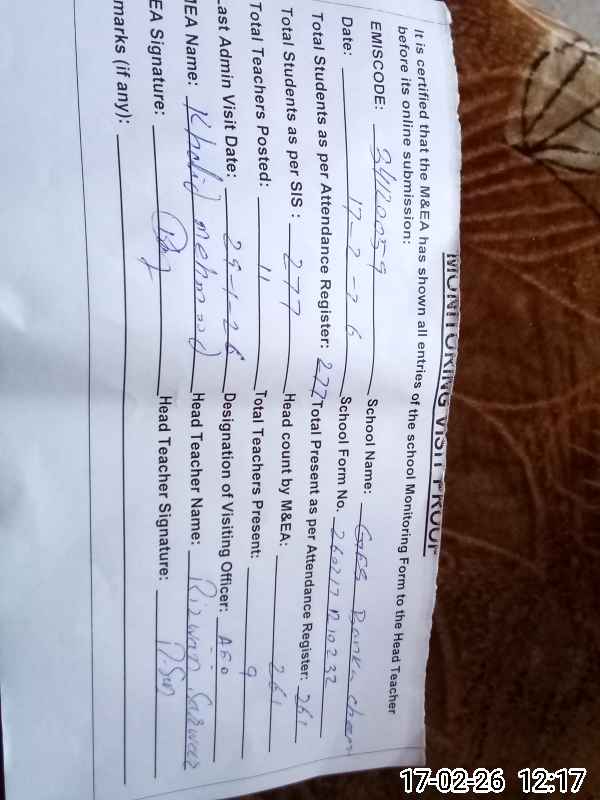 MONITORING VISIT PROOF
It is certified that the M&EA has shown all entries of the school Monitoring Form to the Head Teacher
before its online submission:
EMISCODE: 34120059 School Name: GPS
Date: 17-2-26 School Form No.
Total Students as per Attendance Register: 277 Total Present as per Attendance Register: 261
Total Students as per SIS : 277 Head count by M&EA: 261
Total Teachers Posted: 11 Total Teachers Present: 9
ast Admin Visit Date: 29-1-26 Designation of Visiting Officer: AEO
EA Name: Khalid mehmood Head Teacher Name: Rizwan Sarwar
EA Signature: Head Teacher Signature:
marks (if any):
17-02-26 12:17